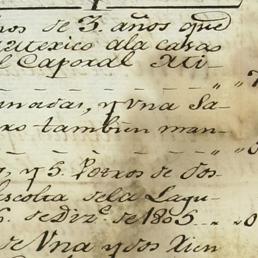 nos de 3. años que
Mexico ala casas
l Caporal Mi-
nadas, y Una Sa-
ro tambien man-
, y 5. Potros de dos
escolta dela Lagu-
6. de Dizᵉ. de 1805
de Una y dos Xien